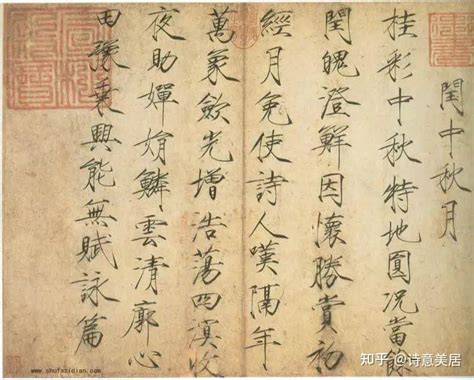 閏中秋月
桂彩中秋特地圓況當餘
閏魄澄鮮因懷勝賞初
經月免使詩人嘆隔年
萬象斂光增浩蕩四溟收
夜助嬋娟鱗雲清廓心
田豫乘興能無賦詠篇
www.shufazidian.com
知乎 @诗意美居